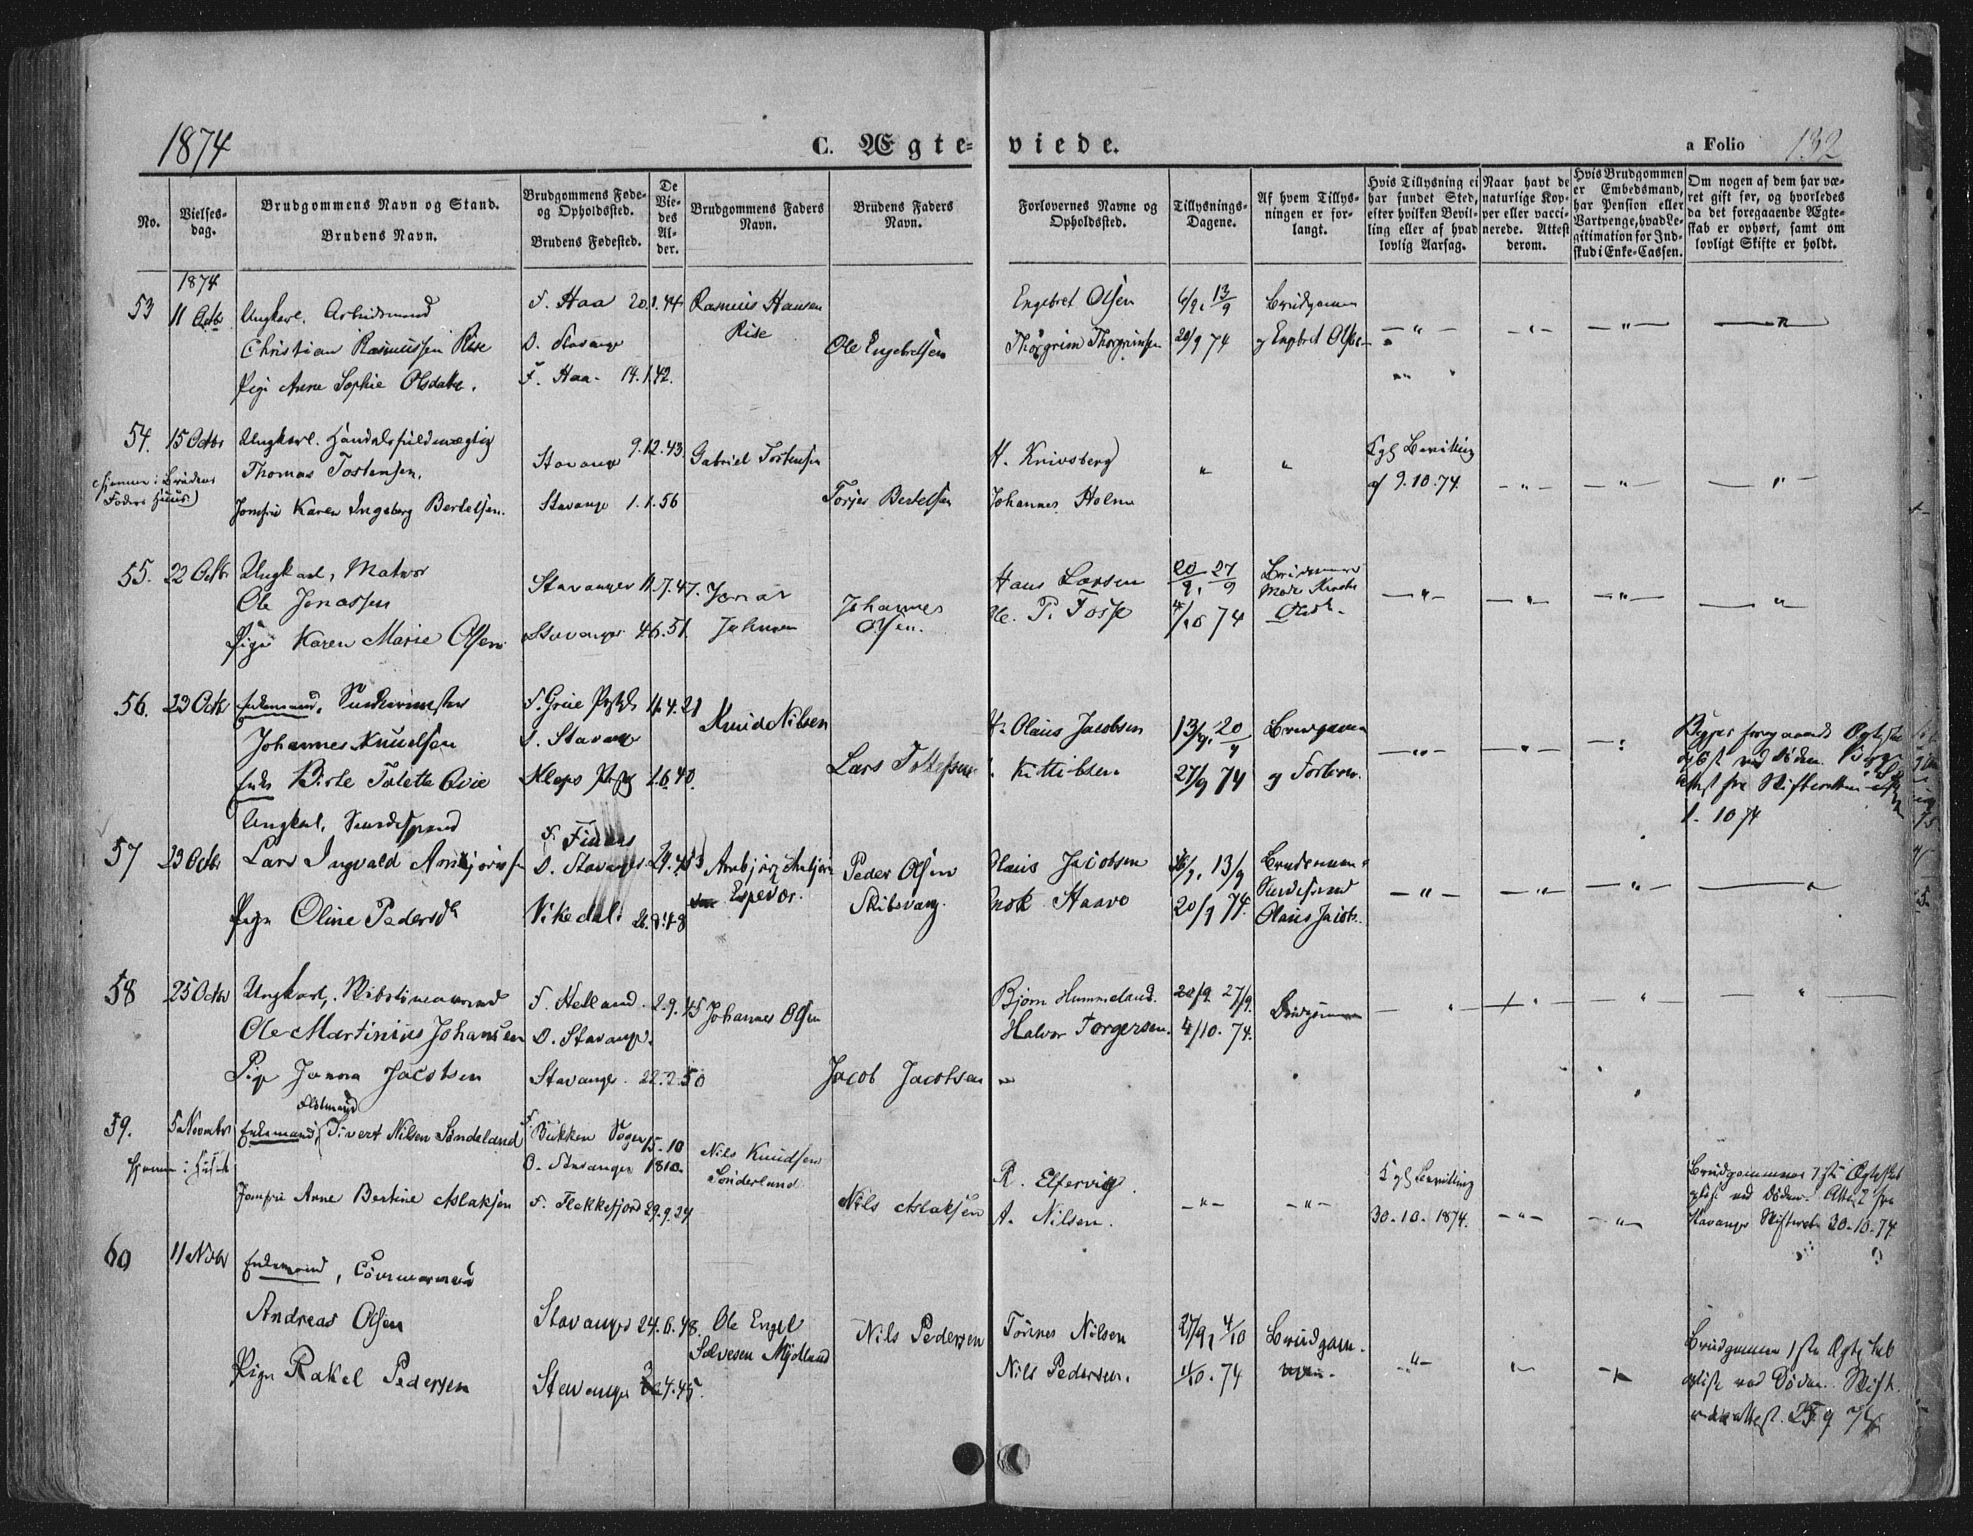 1874
C. Ægteviede.
a Folio 132
No.
Vielses-dag.
Brudgommens Navn og Stand.
Brudens Navn.
Brudgommens Føde- og Opholdssted.
Brudens Fødested.
De Viedes Alder.
Brudgommens Faders Navn.
Brudens Faders Navn.
Forlovernes Navne og Opholdssted.
Tillysnings-Dagene.
Af hvem Tillysningen er forlangt.
Hvis Tillysning ei har fundet Sted, efter hvilken Bevilling eller af hvad lovlig Aarsag.
Naar havt de naturlige Kopper eller vaccinerede. Attest derom.
Hvis Brudgommen er Embedsmand, har Pension eller Vartpenge, hvad Legitimation for Indskud i Enke-Cassen.
Om nogen af dem har været gift før, og hvorledes da det foregaaende Ægteskab er ophørt, samt om lovligt Skifte er holdt.
1874
53 11 Octb Ungkarl. Arbeidsmand F. Haa 20.1.44 Rasmus Hansen Engebret Olsen 6/9, 13/9 Brudgommen
Christian Rasmussen Rise O. Stavanger Rise Ole Engebretsen Thorgrim Thorgrimsen 20/9 74 og Engebret Olsen
Pige Anne Sophie Olsdatter. F. Haa. 14.1.42.
54. 15 Octbr Ungkarl. Handelsfuldmægtig Stavanger 9.12.43 Gabriel Tostensen H. Knivsberg Kgl Bevilling
(hjemme i Brudens Faders Huus) Thomas Tostensen. af 9.10.74.
Jomfru Karen Ingeborg Bertelsen. Stavanger 1.1.56 Torjer Bertelsen Johannes Holm
55. 22 Octbr Ungkarl, Matros Stavanger 11.7.47. Jonas Hans Larsen 20/9, 27/9
Ole Jonassen Johnsen Johannes Olsen. Ole. P. Fosse 4/10 74
Pige Karen Marie Olsen Stavanger 4.6.51.
56. 23 Octbr Enkemand, F. Grue Præstgj 11.4.21 Knud Nilsen H. Olaus Jacobsen 13/9, 20/9 Brudgommen
Johannes Knudsen O. Stavanger Lars Kittilsen 27/9 74 og Forlover.
Enke Birte Tolette Kleps Præstgj 1.6.40.
1. 10 74
57 23 Octbr Ungkarl,
Lars Ingvald F. Finnøs O. Stavanger Espevær. Peder Olsen Olaus Jacobsen 6/9, 13/9
Pige Oline Pedersd. Vikedal. 26.8.48 Enok Haavo 20/9 74. Olaus Jacobs.
58 25 Octbr Ungkarl, F. Helland. 2.9.45 Johannes Olsen Bjørn Hummeland. 20/9 27/9. Brudgommen
Ole Martinius Johansen O. Stavanger. Halvor Torgersen. 4/10. 74.
Pige Janna Jacobsen Stavanger. 22.2.50 Jacob Jacobsen
59. 5 Novmbr Enkemand, Sivert Nilsen Sønderland F. Sukken Sogn 15-10 1810 Nils Knudsen Sønderland R. Elfervig. Kgl Bevilling
hjemme i Huset O. Stavanger
Jomfru Anne Bertine Aslaksen F. Flekkefjord 29.9.24 Nils Aslaksen A. Nilsen. 30.10.1874.
Brudgommens 1ste Ægteskab opløst ved Døden. Attest fra Stavanger Skifteret 30-10-74.
60 11 Novbr Enkemand,
Andreas Olsen Stavanger 24.6.48. Ole Engel Nils Pedersen Tønnes Nilsen 27/9, 4/10 Brudgommen.
Pige Rakel Pedersen Stavanger 4.45. Nils Pedersen. 11/10. 74
Brudgommens 1ste Ægteskab opløst ved Døden.